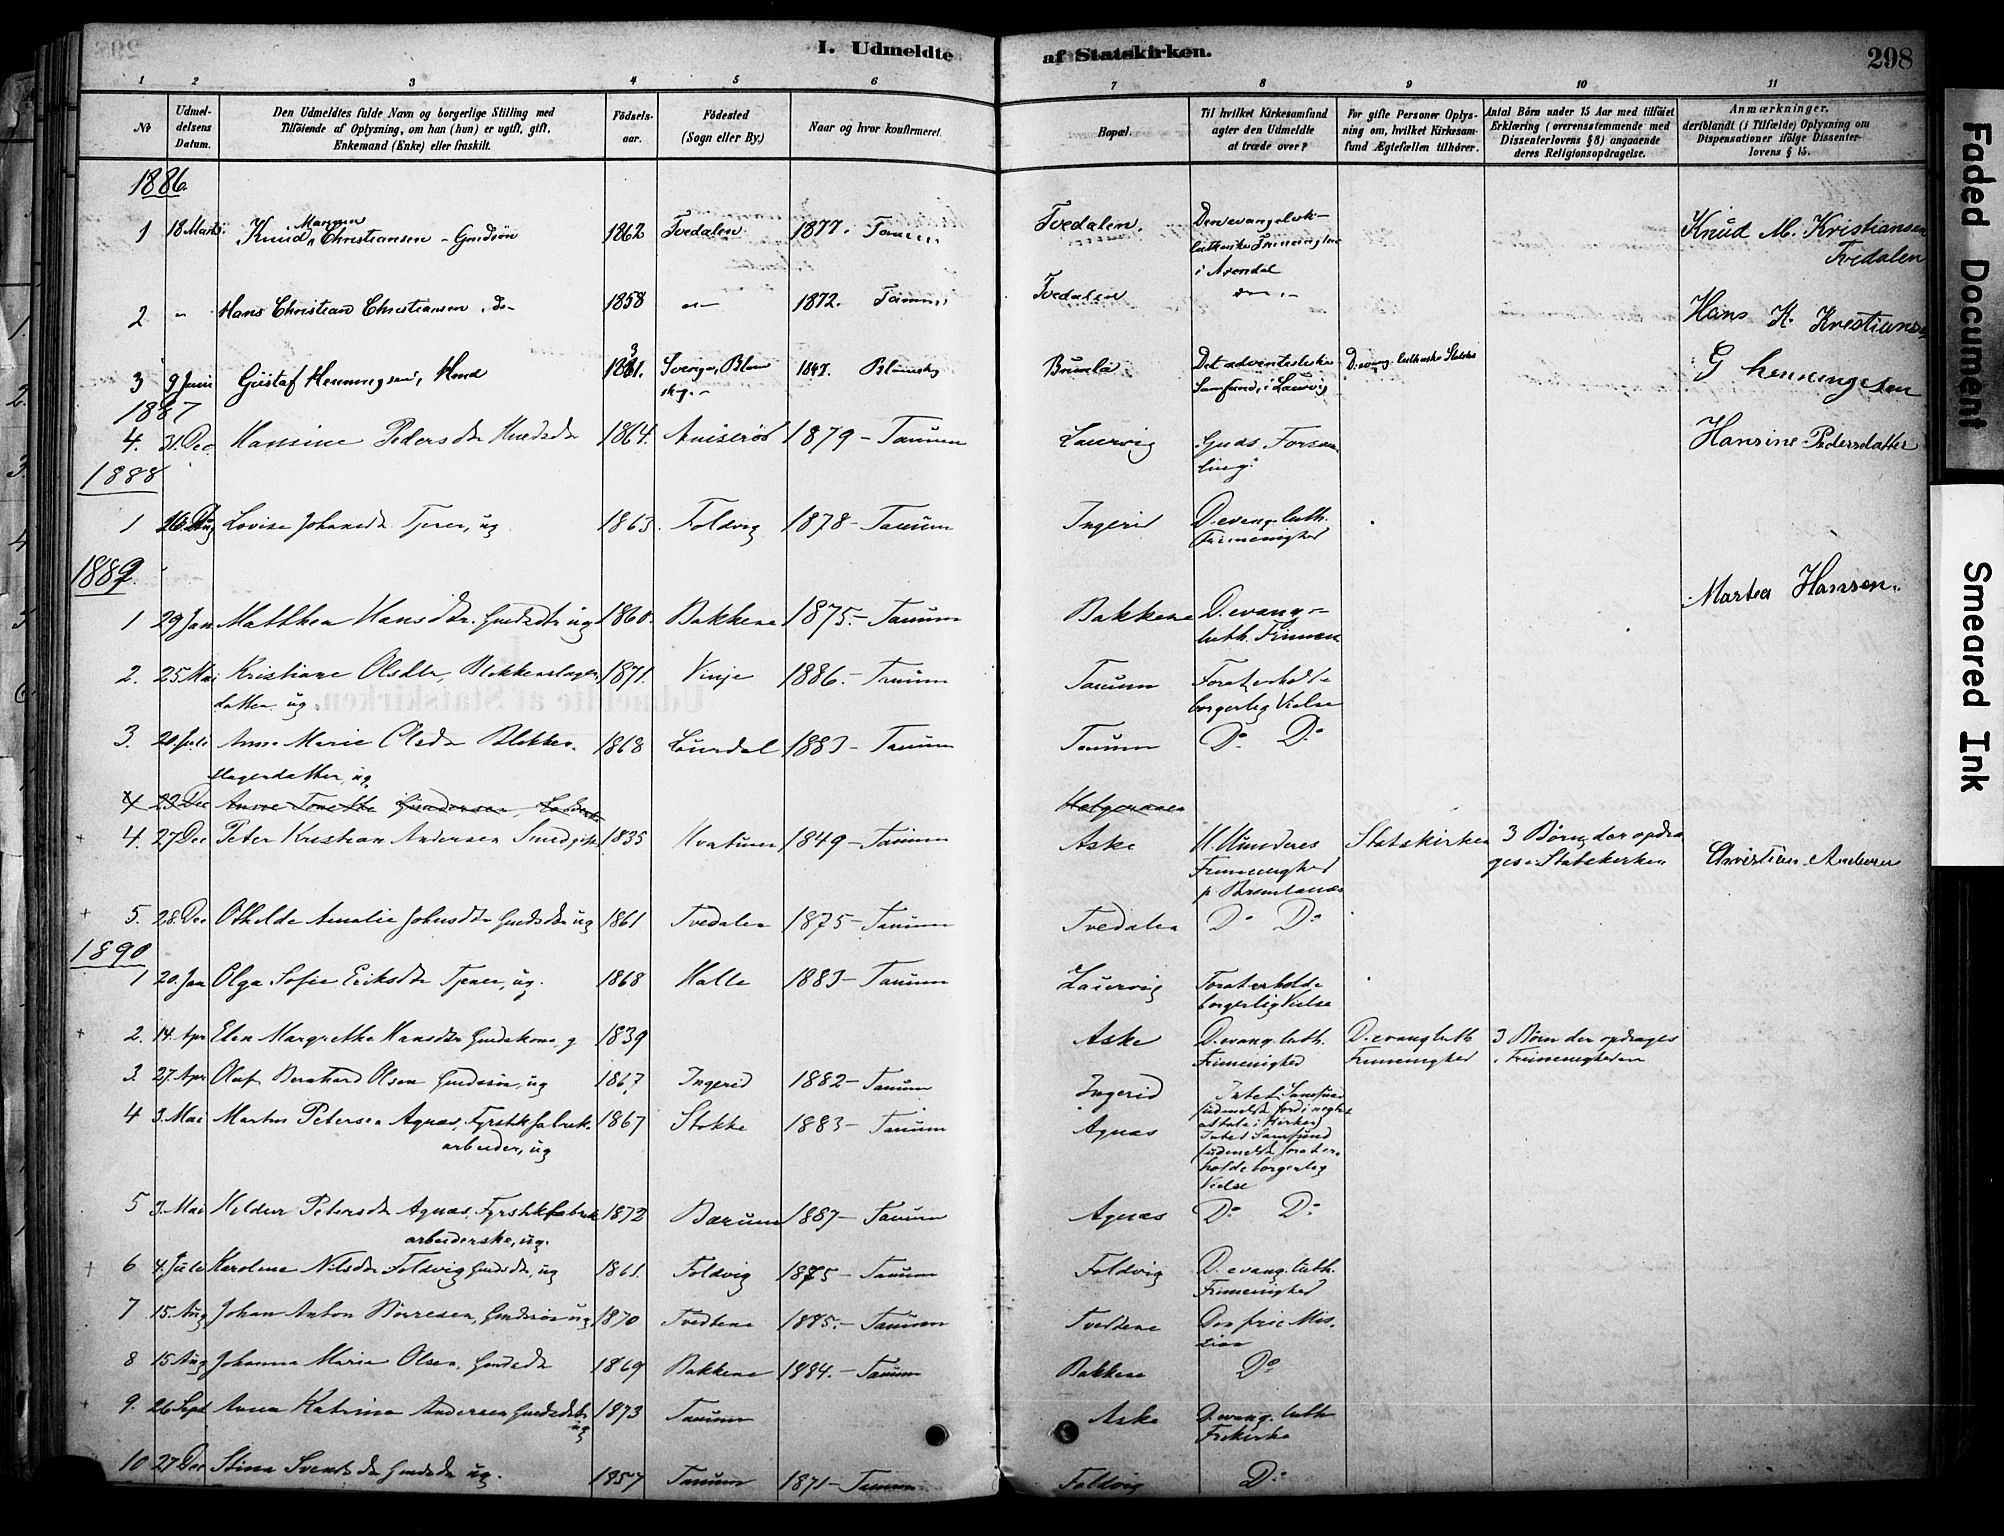 I. Udmeldte af Statskirken. 298
1 2 3 4 5 6 7 8 9 10 11
No Udmeldelsens Datum. Den Udmeldtes fulde Navn og borgerlige Stilling med Tilføiende af Oplysning, om han (hun) er ugift, gift, Enkemand (Enke) eller fraskilt. Fødselsaar. Fødested (Sogn eller By.) Naar og hvor konfirmeret. Bopæl. Til hvilket Kirkesamfund agter den Udmeldte at træde over? For gifte Personer Oplysning om, hvilket Kirkesamfund Ægtefællen tilhører. Antal Børn under 15 Aar med tilføiet Erklæring (overensstemmende med Dissenterlovens § 8) angaaende deres Religionsopdragelse. Anmærkninger, deriblandt (i Tilfælde) Oplysning om Dispensationer ifølge Dissenterlovens § 15.
1886.
1 18 Marts. Knud Marinus Christiansen Gmdsøn 1862 Tvedalen 1877. Tanum Tvedalen. Den evangelisk-lutherske Frimenighed i Arendal Knud M. Kristiansen Tvedalen
2 " Hans Christian Christiansen, do 1858 1872. Tanum Tvedalen Hans K. Kristiansen
3 9 Juni Gustaf Henningsen, Smed Sverige, Blomskog 1847. Blomskog Brunla Det adventistiske Samfund, i Laurvig D. evang. lutherske Statsk. G Henningsen
1887
4. 31. Dec. Hansine Pedersdtr 1864. Aniserød 1879 - Tanum Laurvig Guds Forsamling Hansine Pedersdatter
1888
1 16 Aug Lovise Johansdtr Tjener, ug 1863. Foldvig 1878 - Tanum Ingerid D. evang. luth. Frimenighed
1889.
1 29 Jan Matthea Hansdtr. Gmdsdtr ug 1860. Bakkene 1875. - Tanum Bakkene D. evang- luth. Frimen Martea Hansen.
2. 25 Mai Kristiane Olsdtr, Blokkeslagerdatter. ug 1871. Vinje 1886. - Tanum Tanum For at erholde borgerlig Vielse
3. 20. Juli Anne Marie Olsdtr Blokkeslagerdatter, ug 1868 1883 - Tanum Tanum Do Do
4 23 Dec Anne Tonette Gundersen, Helgeraaen
+ 4. 27 Dec Peter Kristian Andersen Smed gift 1835 Kvatum 1849 - Tanum Aske Frimenighed p. Brunlanæs Statskirken 3 Børn, der opdrages i Statskirken Christian Andersen
+ 5. 28. Dec Othilde Amalie Johnsdtr Gmdsdtr ug 1861 Tvedalen 1875 - Tanum Tvedalen Do Do
1890
1 20. Jan Olga Sofie Eriksdtr Tjener, ug. 1868 Halle 1883 - Tanum Laurvig For at erholde borgerlig Vielse
+ 2. 14. Apr Elen Margrethe Hansdtr Gmdskone, g 1839 Aske D. evang. luth. Frimenighed D. evang luth Frimenighed 3 Børn der opdrages i Frimenigheden
3. 27. Apr Olaf Bernhard Olsen Gmdssøn, ug 1867 Ingerid 1882 - Tanum Ingerid Intet Samfund (udmeldt fordi negtet at tale i Kirken)
4 3. Mai Martin Petersen Agnæs, Fyrstikfabrikarbeider, ug 1867 Stokke 1883 - Tanum Agnæs Intet Samfund (udmeldt for at erholde borgerlig Vielse
5 3. Mai Hildur Petersdtr Agnæs, Fyrstikfabrikarbeiderske, ug. 1872 Bærum 1887 - Tanum Agnæs Do Do
+ 6 4. Juli Karoline Nilsdtr Foldvig Gmdsdtr, ug 1861. Foldvig 1875 - Tanum Foldvig D. evang. luth. Frimenighed
7 15. Aug Johan Anton Nørresen, Gmdssøn ug 1870 Tvedtene 1885. - Tanum Tvedtene Den frie Mission
8 15 Aug Johanna Marie Olsen, Gmdsdtr 1869 Bakkene 1884. - Tanum Bakkene Do
+ 9. 26 Sept Anna Katrine Andersen Gmdsdtr ug 1873 Tanum Aske D. evang. luth Frikirke
10 27 Dec Stina Svendsdtr Gmdsdtr ug. 1857 Tanum 1871 - Tanum Foldvig Do
Faded Document
Smeared Ink